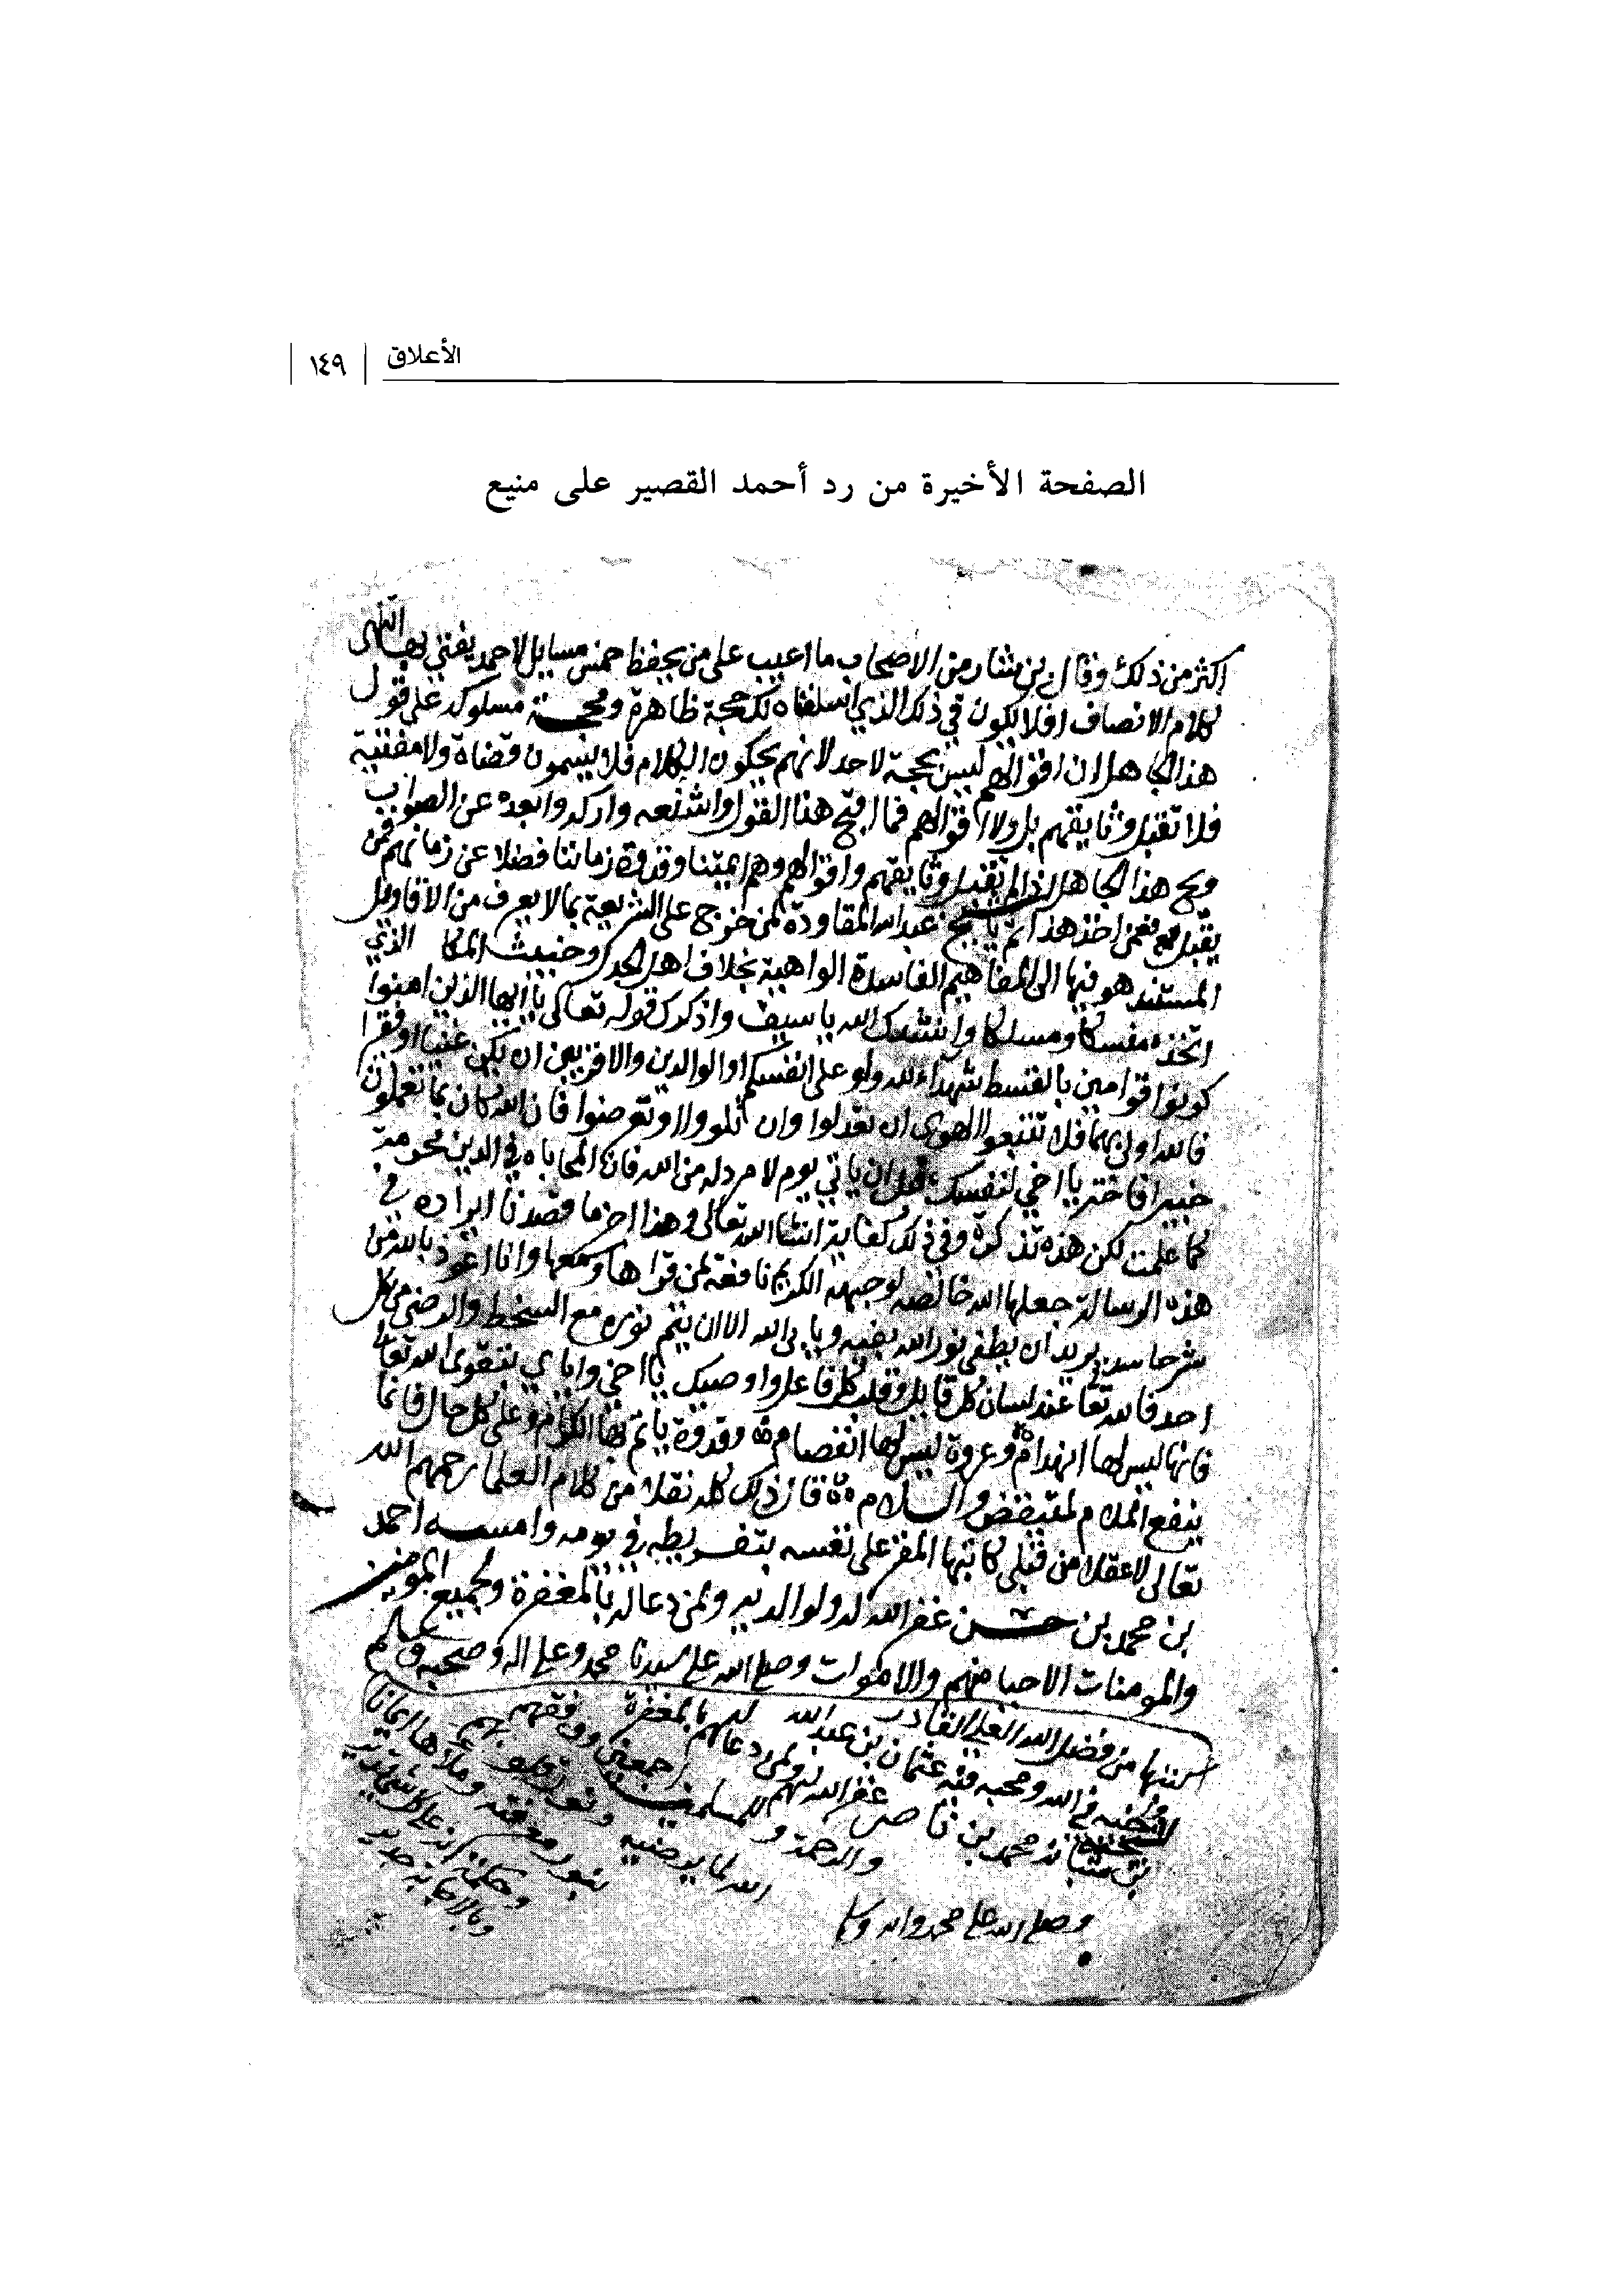 الأعلاق
١٤٩
الصفحة الأخيرة من رد أحمد القصير على منيع
اكثر من ذلك وقال بن بشار من الاصحاب ما اعيب على من يحفظ خمس مسايل لاحمد يفتي بها انتهى
كلام الانصاف افلا يكون في ذلك الذي اسلفناه لك حجة ظاهرة ومحجة مسلوكه على قول
هذا الجاهل ان اقوالهم ليس بحجة لاحد لانهم يحكون الكلام فلا يسمون قضاة ولا مفتية
فلا تقبل وثايقهم بل ولا اقوالهم فما اقبح هذا القول واشنعه واركه وابعده عن الصواب
ويح هذا الجاهل اذا لم تقبل وثايقهم واقوالهم وهم ايمتنا وقدوة زماننا فضلا عن زمانهم فمن
يقبل فعمن اخذ هذا ثم يا شيخ عبد الله المقاودة لمن خرج على الشريعة بما لا يعرف من الاقاويل
المستند هو فيها الى المفاهيم الفاسدة الواهية بخلاف اهل وخبيث الذي
اتخذه ومسلكا وانشدك الله يا سيف واذكرك قوله تعالى يا ايها الذين امنوا
كونوا قوامين بالقسط شهداء لله ولو على انفسكم او الوالدين والاقربين ان يكن غنيا او فقيرا
فالله اولى بهما فلا تتبعوا الهوى ان تعدلوا وان تلووا او تعرضوا فان الله كان بما تعملون
خبيرا فاختر يا اخي لنفسك قبل ان ياتي يوم لا مرد له من الله فان المحاباه في الدين محرمة
كما علمت لكن هذه تذكرة وفي ذلك كفاية انشا الله تعالى وهذا اخر ما قصدنا ايراده في
هذه الرسالة جعلها الله خالصة لوجهه الكريم نافعة لمن قراها وسمعها وانا اعوذ بالله من
شر حاسد يريد ان يطفي نور الله بفيه ويابى الله الا ان يتم نوره مع السخط والرضى من كل
احد فالله تعا عند لسان كل قايل وقلب كل فاعل واوصيك يا اخي واياي بتقوى الله تعالى
فانها ليس لها انهدام وعروة ليس لها انفصام وقدوة ياتم بها الكرام وعلى كل حال فانما
ينفع الملام لمتيقض والسلام قال ذلك كله نقلا من كلام العلما رحمهم الله
تعالى لا عقلا من قبلي كاتبها المقر على نفسه بتفريطه في يومه وامسه احمد
بن محمد بن حسن غفر الله له ولوالديه ولمن دعا له بالمغفرة ولجميع المومنين
والمومنات الاحيا منهم والاموات وصلى الله على سيدنا محمد وعلى اله وصحبه وسلم
من فضل الله العلي القادر
في الله ومحبه فيه عثمان بن عبد الله
بن محمد بن ناصر غفر الله لهم ولمن دعا لهم بالمغفرة
والرحمة وللمسلمين اجمعين ووفقهم
الله لما يرضيه
وصلى الله على محمد واله وسلم